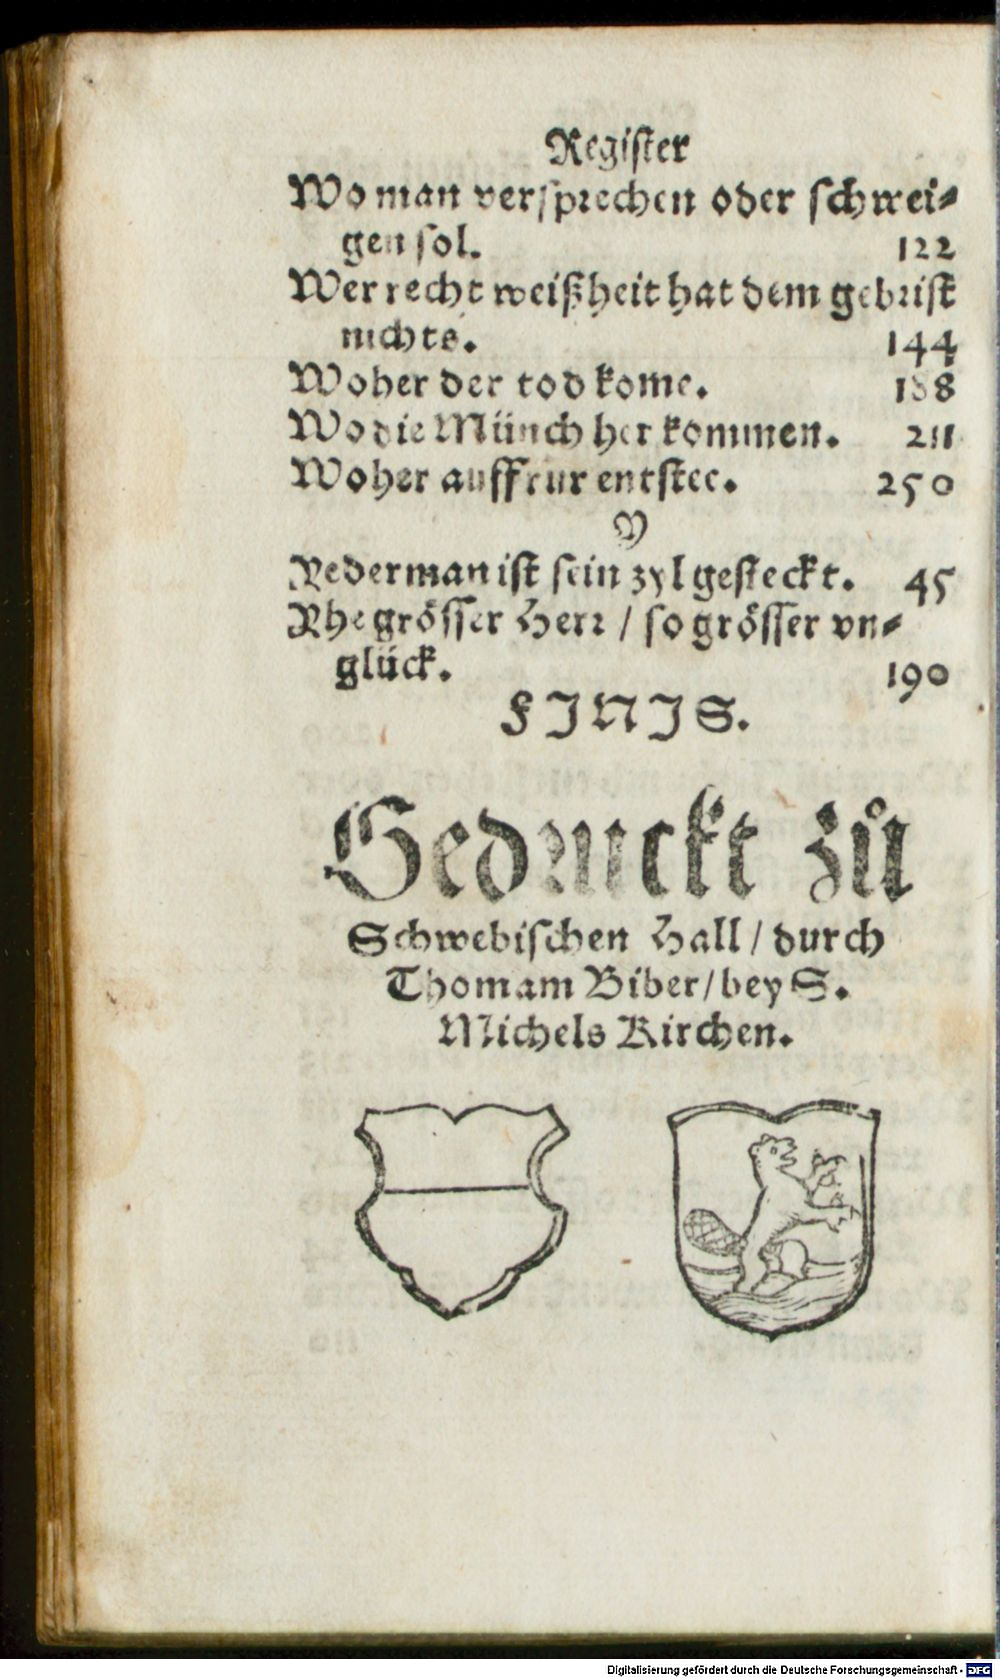 Register
Wo man versprechen oder schwei-
gen sol. 122
Wer recht weißheit hat dem gebrist
nichts. 144
Woher der tod kome. 188
Wo die Münch her kommen. 211
Woher auffrur entstee. 250
Y
Yederman ist sein zyl gesteckt. 45
Yhe grösser Herr / so grösser vn-
glück. 190
FINIS.
Gedruckt zů
Schwebischen Hall / durch
Thomam Biber / bey S.
Michels Kirchen.
Digitalisierung gefördert durch die Deutsche Forschungsgemeinschaft - DFG